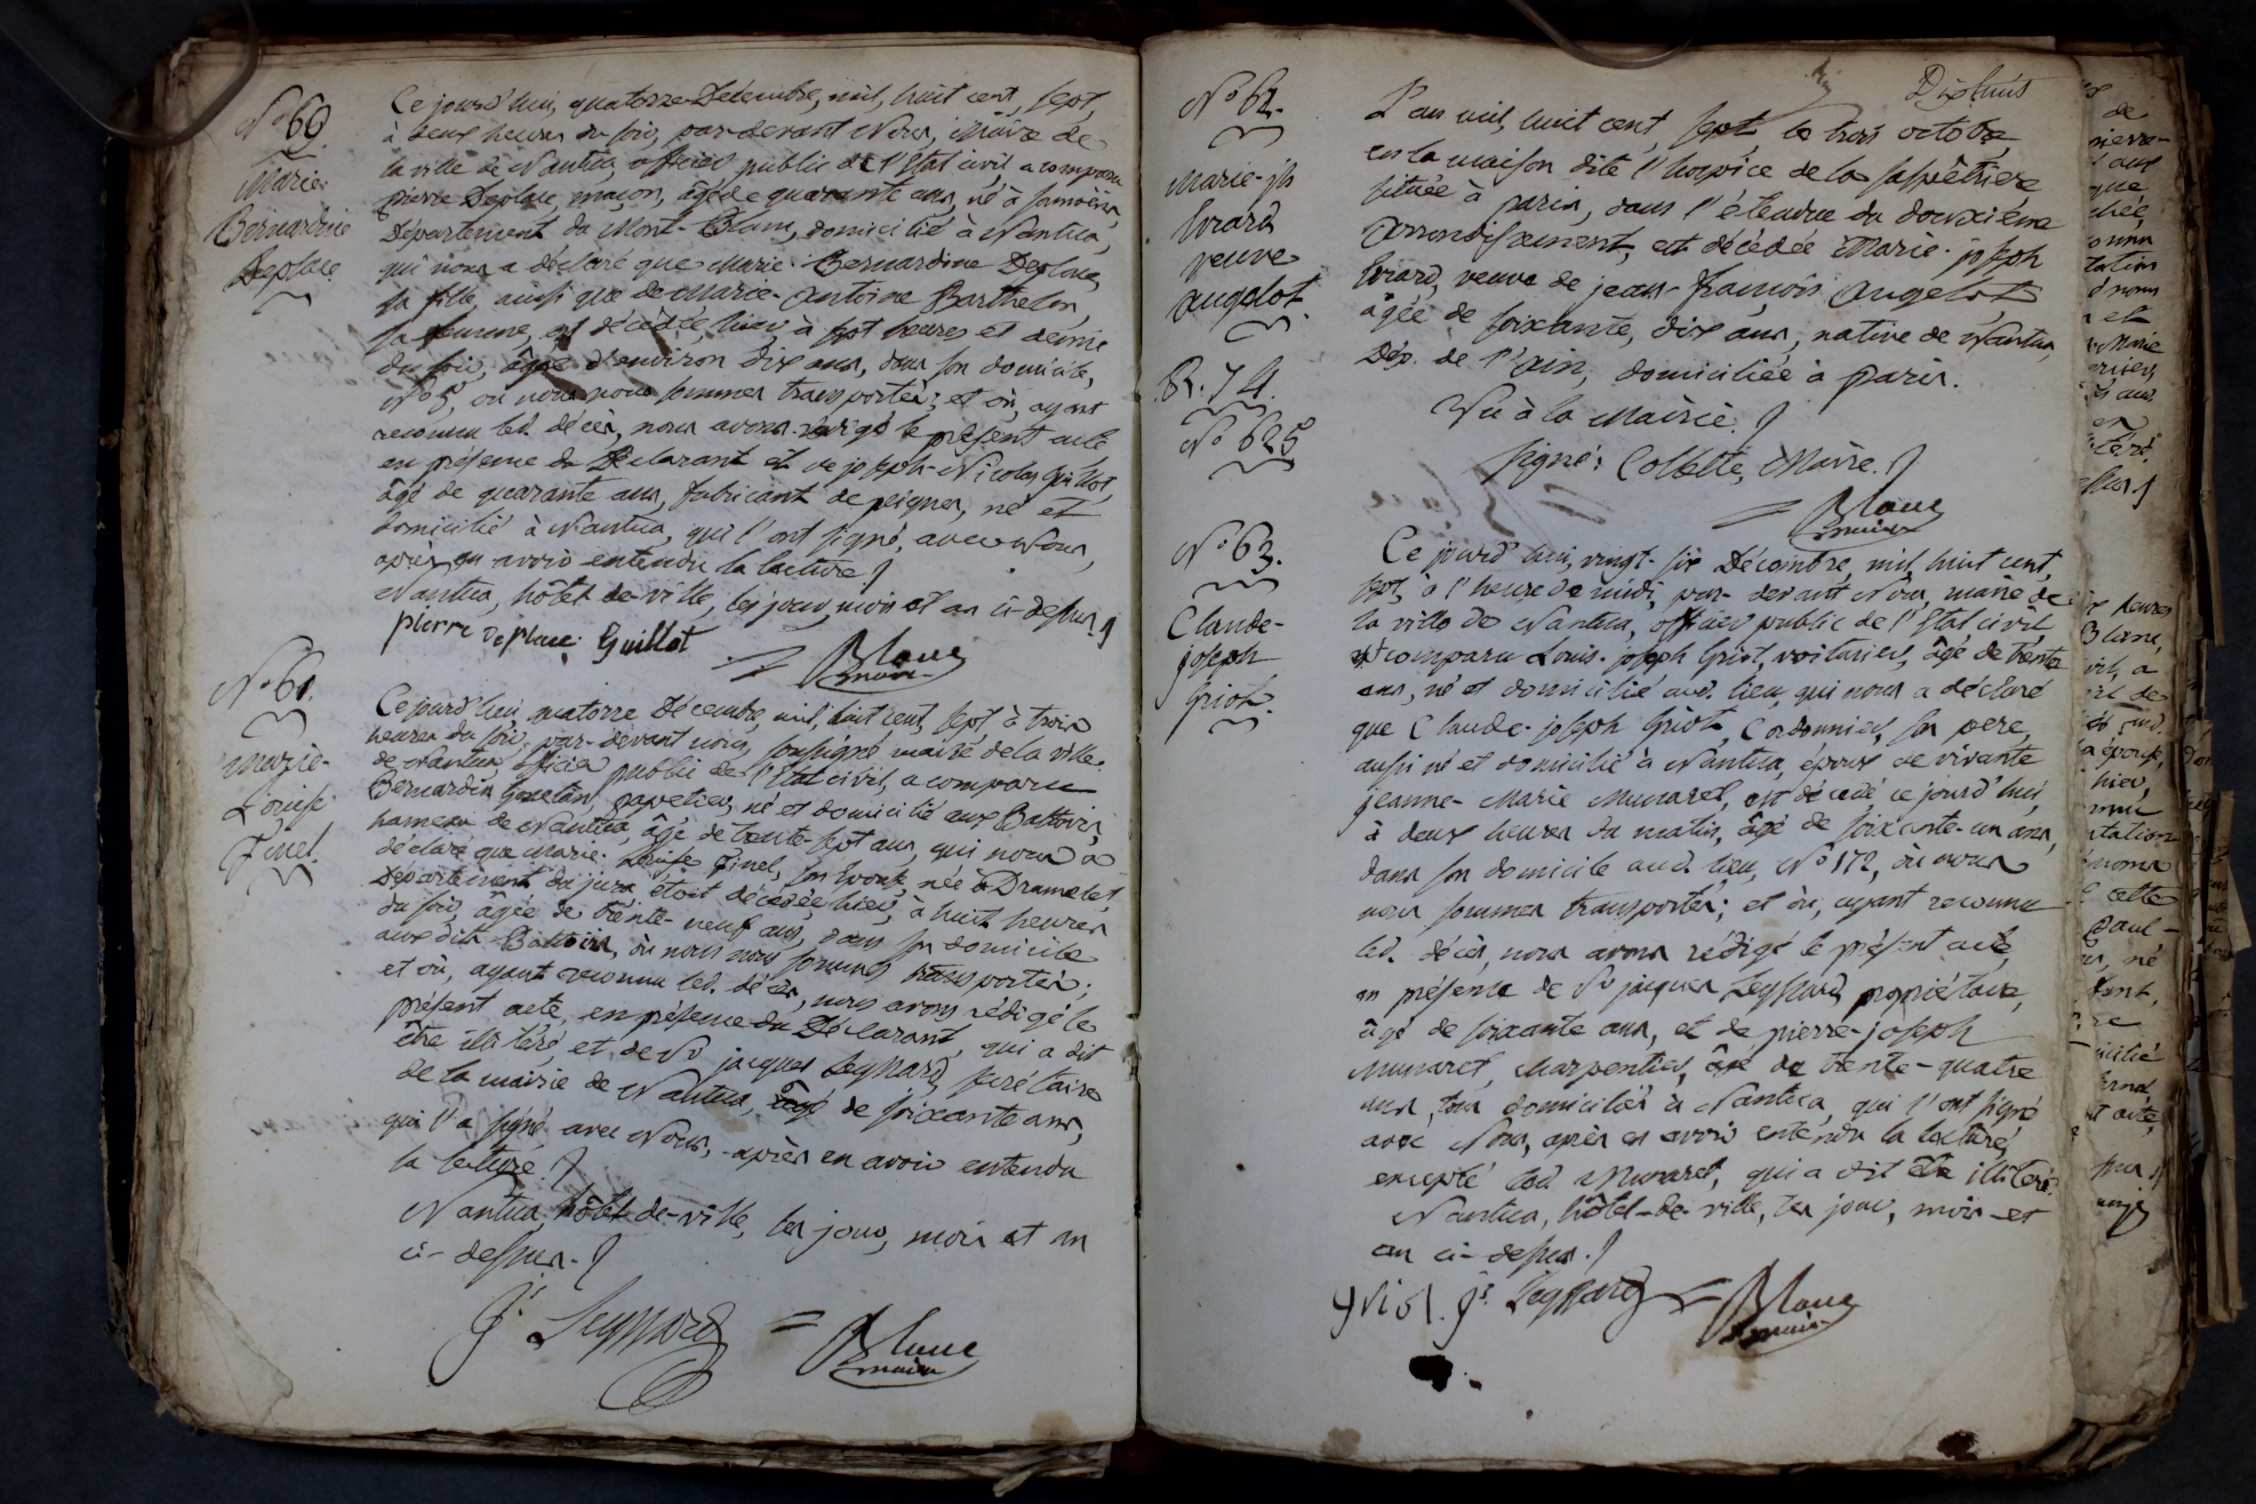 N.o 60.
Marie-
Bernardine
Deplace
Ce jourd'hui, quatorze Décembre, mil, huit cent, sept,
à deux heures du soir, par-devant Nous, Maire de
la ville de Nantua, officier public de l'Etat civil, a comparu
pierre Deplace, maçon, âgé de quarante ans, né à Samoëns,
Département du Mont-Blanc, domicilié à Nantua,
qui nous a déclaré que Marie-Bernardine Deplace,
sa fille, ainsi que de Marie-Antoine Barthelon,
sa femme, est décédée, hier, à sept heures et demie
du soir, âgée d'environ dix ans, dans son domicile,
N.o 5, où nous nous sommes transportés; et où, ayant
reconnu led. décès, nous avons rédigé le présent acte
en présence du Déclarant et de joseph-Nicolas Guillot,
âgé de quarante ans, fabricant de peignes, né et
domicilié à Nantua, qui l'ont signé, avec Nous,
après en avoir entendu la lecture.
Nantua, hôtel-de-ville, les jour, mois et an ci-dessus.
pierre Deplace. Guillot = Blanc
maire
N.o 61.
Marie-
Louise
Finel.
Ce jourd'hui, quatorze Décembre, mil, huit cent, sept, à trois
heures du soir, par-devant nous, soussigné maire de la ville
de Nantua, officier public de l'Etat civil, a comparu
Bernardin papetier, né et domicilié aux Battoirs,
hameau de Nantua, âgé de trente-sept ans, qui nous a
déclaré que Marie-Louise Finel, son Epouse, née à
Département du jura, étoit décédée, hier, à huit heures
du soir, âgée de trente-neuf ans, dans son domicile
aux dits Battoirs, où nous nous sommes transportés;
et où, ayant reconnu led. décès, nous avons rédigé le
présent acte, en présence du Déclarant, qui a dit
être illitéré, et de Sr jacques Leyssard, secrétaire
de la mairie de Nantua, âgé de soixante ans,
qui l'a signé avec Nous, après en avoir entendu
la lecture.
Nantua, hôtel-de-ville, les jour, mois et an
ci-dessus.
Js. Leyssard = Blanc
maire
Dix huit
N.o 62.
Marie-jh
Girard
veuve
Angelot.
R. 74.
N.o 625
L'an mil, huit cent, sept, le trois octobre,
en la maison dite l'hospice de la salpêtriere
située à paris, dans l'étendue du douzième
arrondissement, est décédée Marie-joseph
Girard, veuve de jean-françois Angelot,
âgée de soixante, dix ans, native de Nantua,
Dép. de l'ain, domiciliée à paris.
Vu à la Mairie.
signé: Collette, Maire.
= Blanc
maire
N.o 63.
Claude-
joseph
Griot.
Ce jourd'hui, vingt-six Décembre, mil, huit cent,
sept, à l'heure de midi, par-devant Nous, maire de
la ville de Nantua, officier public de l'Etat civil,
a comparu Louis-joseph Griot, voiturier, âgé de trente
ans, né et domicilié aud. lieu, qui nous a déclaré
que Claude-joseph Griot, Cordonnier, son pere,
aussi né et domicilié à Nantua, époux de vivante
jeanne-Marie Munaret, est décédé, ce jourd'hui,
à deux heures du matin, âgé de soixante-un ans,
dans son domicile aud. lieu, N.o 172, où nous
nous sommes transportés; et où, ayant reconnu
led. décès, nous avons rédigé le présent acte,
en présence de Sr jacques Leyssard, propriétaire,
âgé de soixante ans, et de pierre-joseph
Munaret, charpentier, âgé de trente-quatre
ans, tous domiciliés à Nantua, qui l'ont signé
avec Nous, après en avoir entendu la lecture,
excepté led. Munaret, qui a dit être illitéré.
Nantua, hôtel-de-ville, les jour, mois et
an ci-dessus.
griot. Js. Leyssard = Blanc
maire